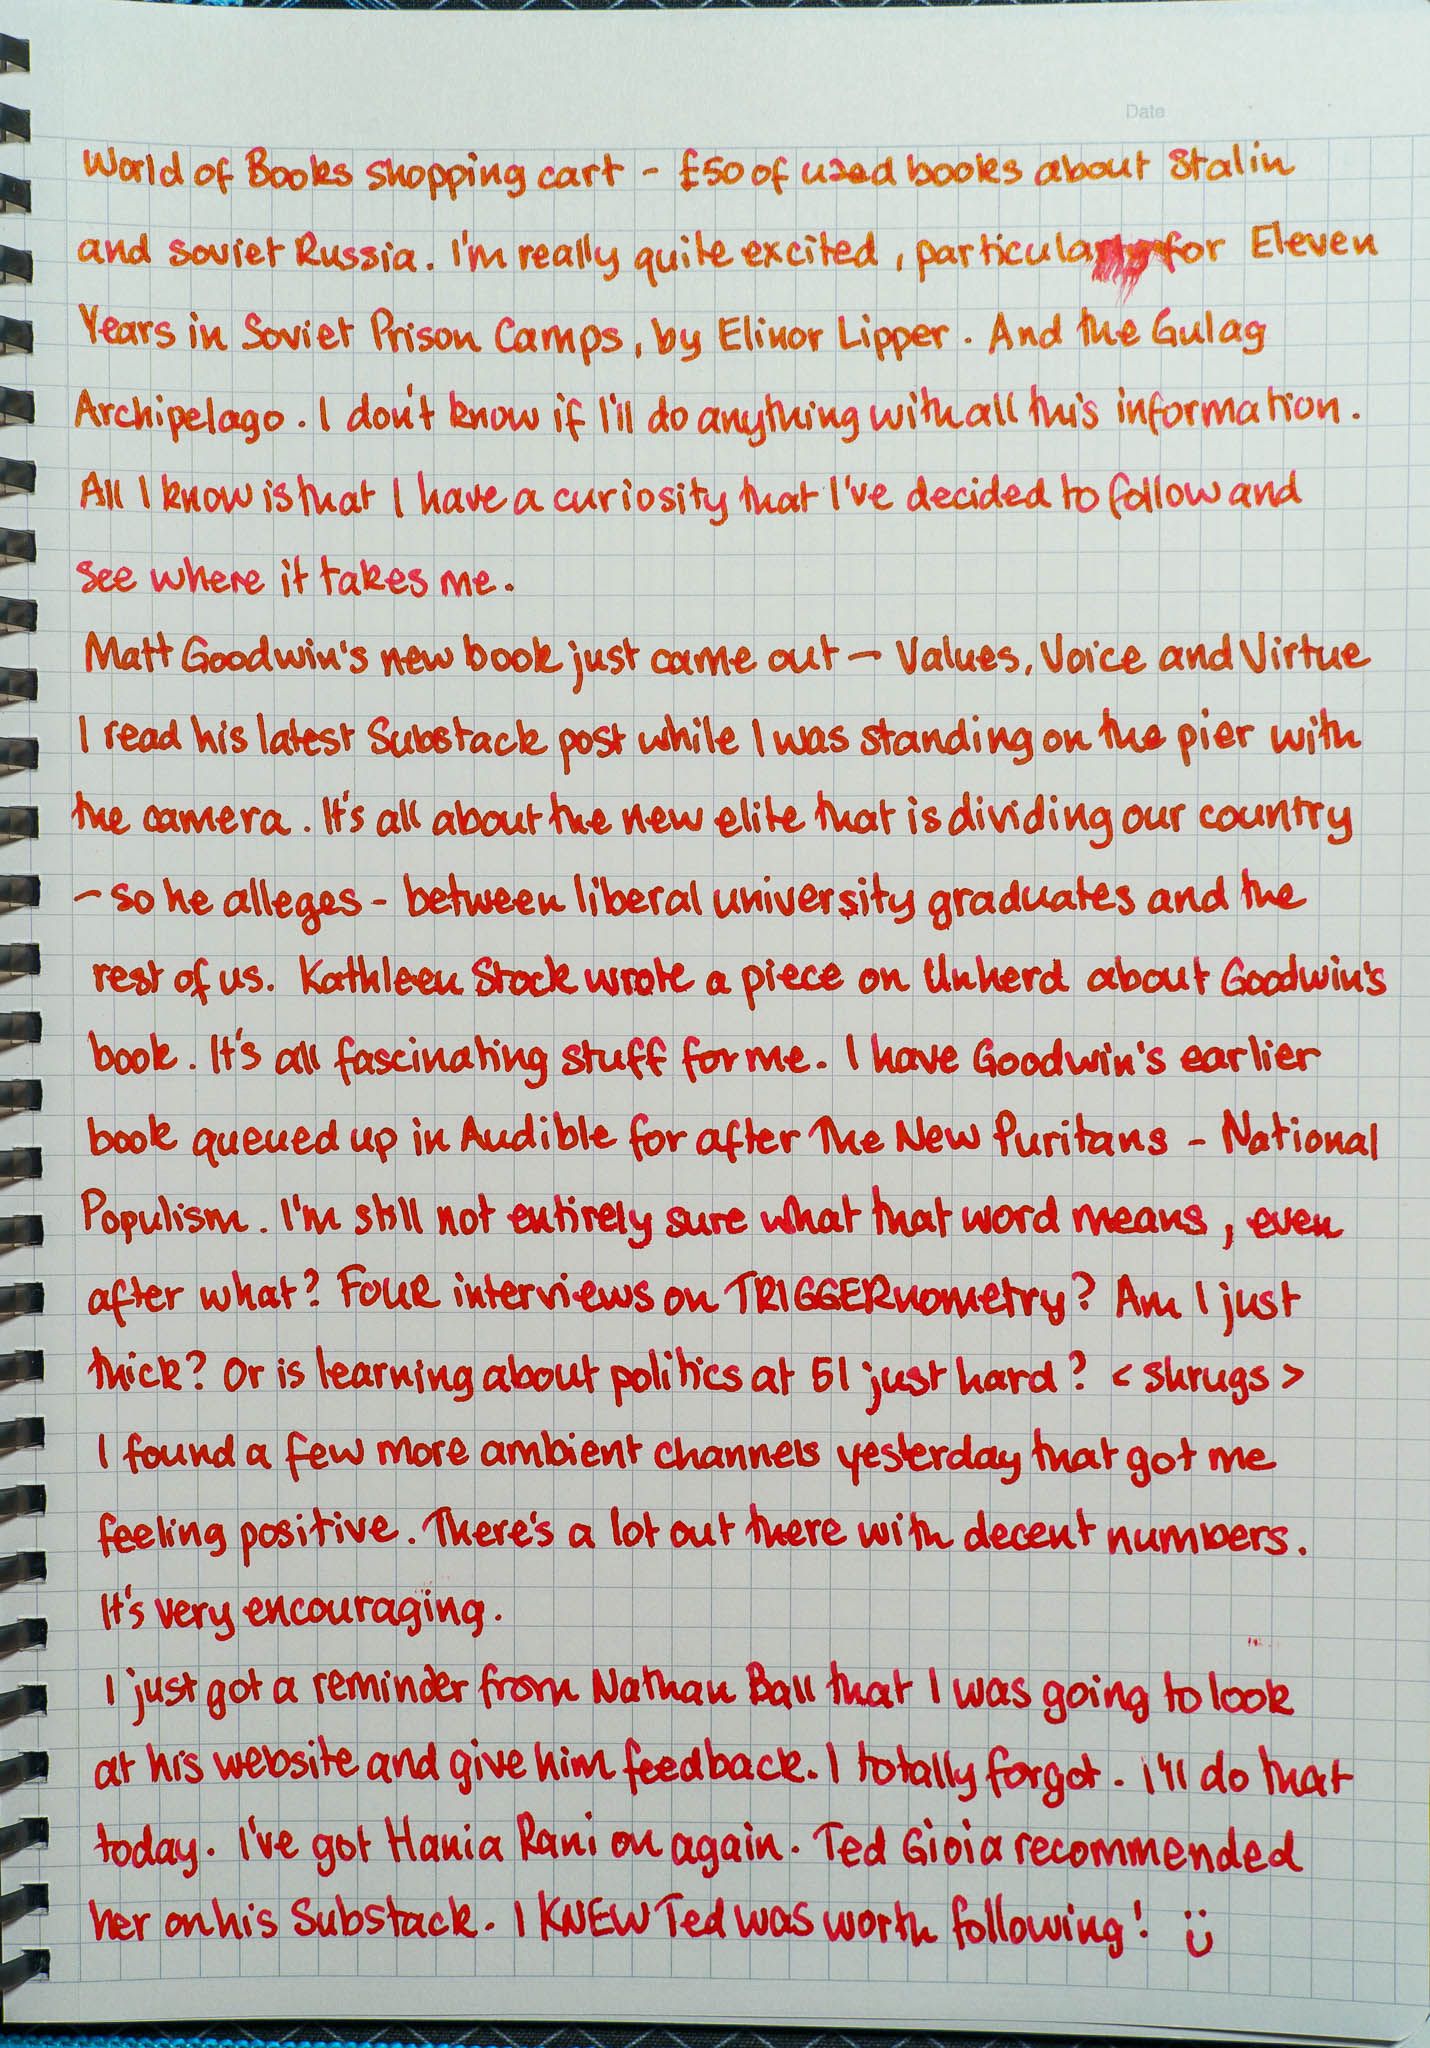 Date
World of Books shopping cart - £50 of used books about Stalin
and Soviet Russia. I'm really quite excited, particularly for Eleven
Years in Soviet Prison Camps, by Elinor Lipper. And the Gulag
Archipelago. I don't know if I'll do anything with all this information.
All I know is that I have a curiosity that I've decided to follow and
see where it takes me.
Matt Goodwin's new book just came out - Values, Voice and Virtue
I read his latest Substack post while I was standing on the pier with
the camera. It's all about the new elite that is dividing our country
- so he alleges - between liberal university graduates and the
rest of us. Kathleen Stock wrote a piece on Unherd about Goodwin's
book. It's all fascinating stuff for me. I have Goodwin's earlier
book queued up in Audible for after The New Puritans - National
Populism. I'm still not entirely sure what that word means, even
after what? FOUR interviews on TRIGGERnometry? Am I just
thick? Or is learning about politics at 51 just hard? <shrugs>
I found a few more ambient channels yesterday that got me
feeling positive. There's a lot out there with decent numbers.
It's very encouraging.
I just got a reminder from Nathan Ball that I was going to look
at his website and give him feedback. I totally forgot. I'll do that
today. I've got Hania Rani on again. Ted Gioia recommended
her on his Substack. I KNEW Ted was worth following! :)